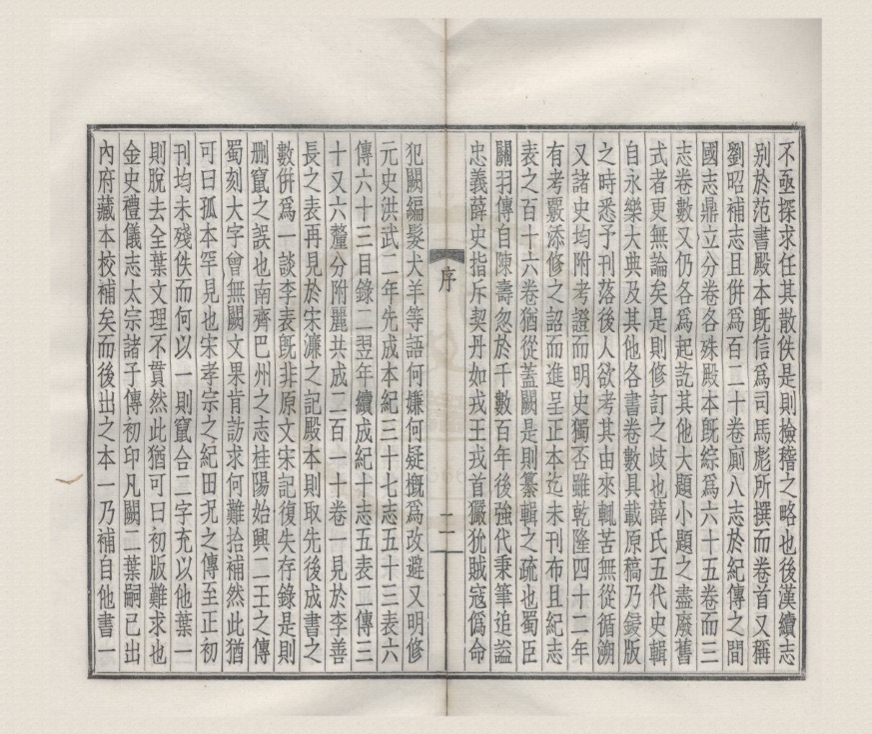 不亟探求任其散佚是則撿稽之略也後漢續志
别於范書殿本旣信爲司馬彪所撰而卷首又稱
劉昭補志且併爲百二十卷廁八志於紀傳之間
國志鼎立分卷各殊殿本旣綜爲六十五卷而三
志卷數又仍各爲起訖其他大題小題之盡廢舊
式者更無論矣是則修訂之歧也薛氏五代史輯
自永樂大典及其他各書卷數具載原稿乃鋟版
之時悉予刊落後人欲考其由來輒苦無從循溯
又諸史均附考證而明史獨否雖乾隆四十二年
有考覈添修之詔而進呈正本迄未刊布且紀志
表之百十六卷猶從蓋闕是則纂輯之疏也蜀臣
關羽傳自陳壽忽於千數百年後強代秉筆追謚
忠義薛史指斥契丹如戎王戎首玁狁賊寇僞命
序
二
犯闕編髮犬羊等語何嫌何疑槪爲改避又明修
元史洪武二年先成本紀三十七志五十三表六
傳六十三目錄二翌年續成紀十志五表二傳三
十又六釐分附麗共成二百一十卷一見於李善
長之表再見於宋濂之記殿本則取先後成書之
數併爲一談李表旣非原文宋記復失存錄是則
删竄之誤也南齊巴州之志桂陽始興二王之傳
蜀刻大字曾無闕文果肯訪求何難拾補然此猶
可曰孤本罕見也宋孝宗之紀田况之傳至正初
刊均未殘佚而何以一則竄合二字充以他葉一
則脫去全葉文理不貫然此猶可曰初版難求也
金史禮儀志太宗諸子傳初印凡闕二葉嗣已出
內府藏本校補矣而後出之本一乃補自他書一